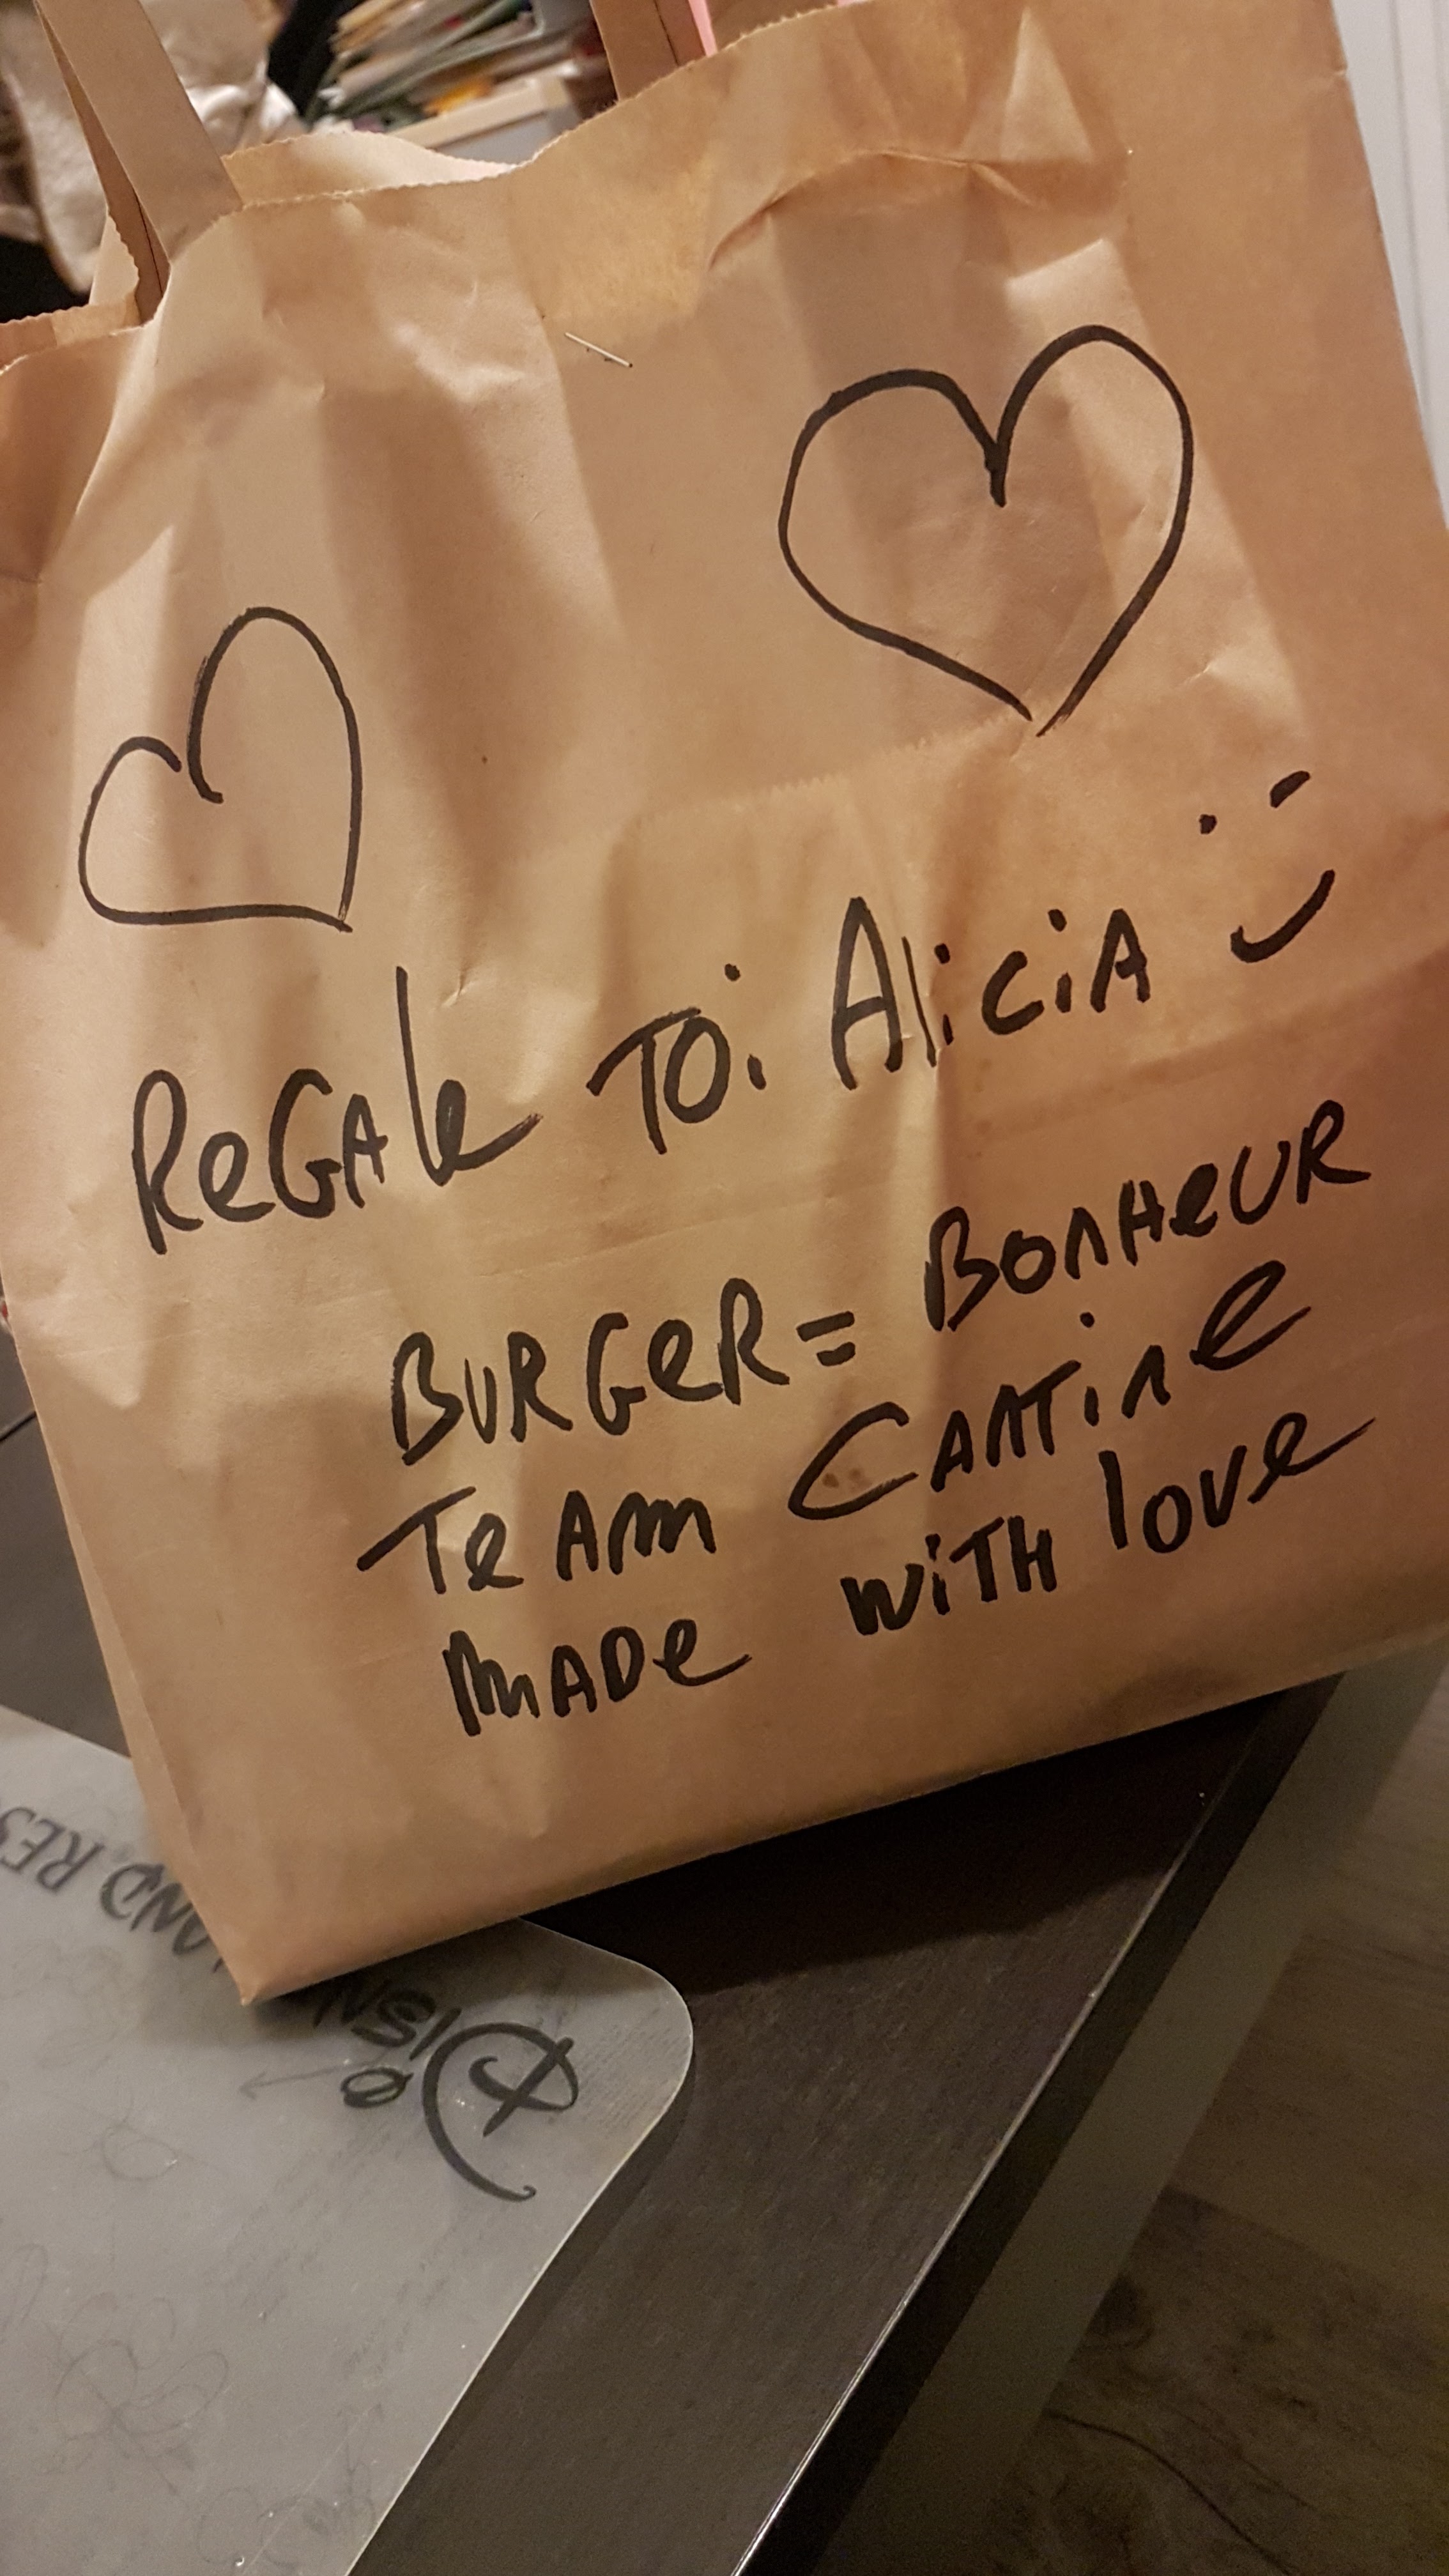 ReGAle Toi Alicia :)
BURGeR = BonHeUR
TeAm CAnTine
mADe wiTH love
DISN AND RES